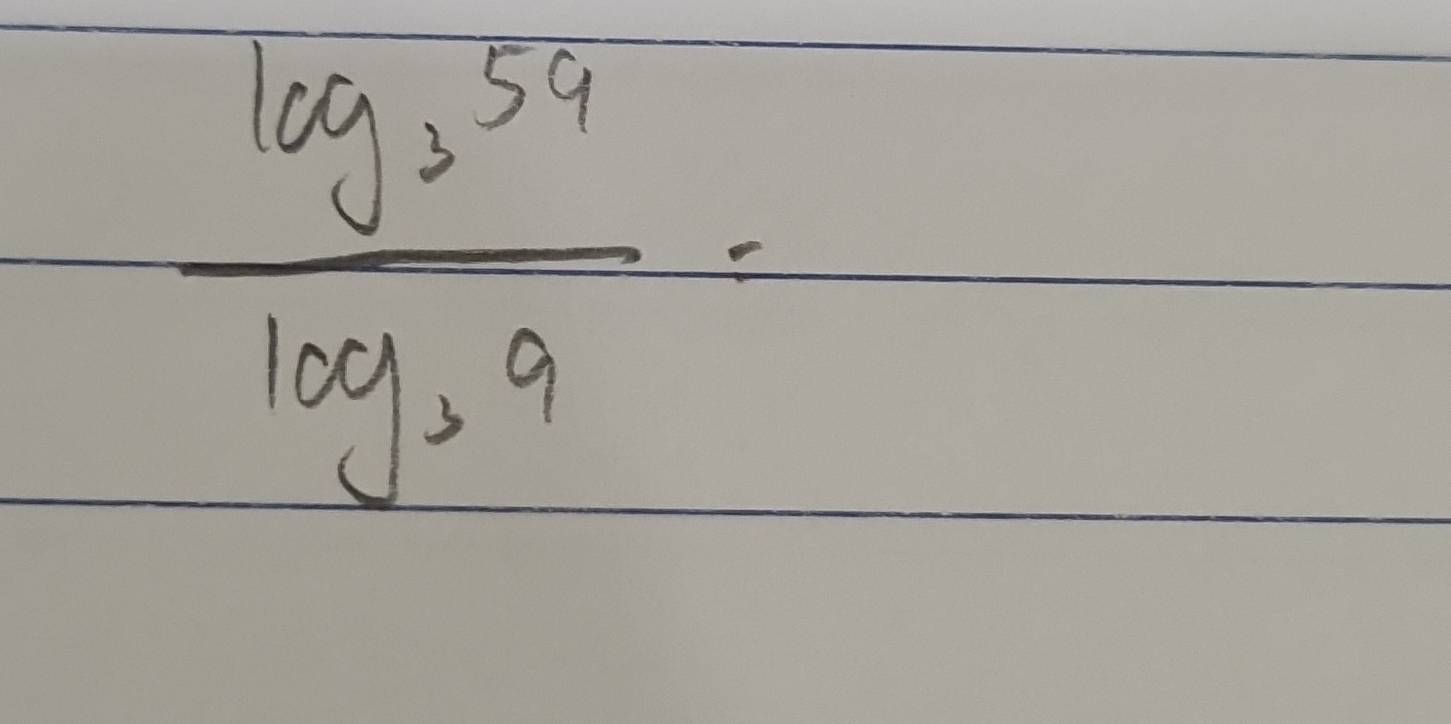 log₃ 59
log₃ 9 =